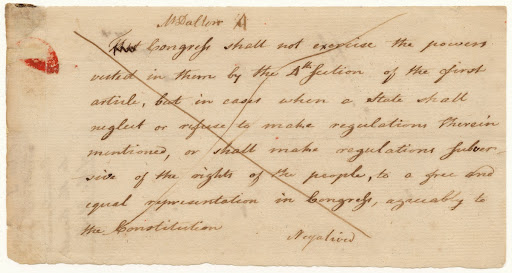 Mr Dalton A
That Congress shall not exercise the powers
vested in them by the 4th Section of the first
article, but in cases when a State shall
neglect or refuse to make regulations therein
mentioned, or shall make regulations subver-
sive of the rights of the people, to a free and
equal representation in Congress, agreeably to
the Constitution
Negatived